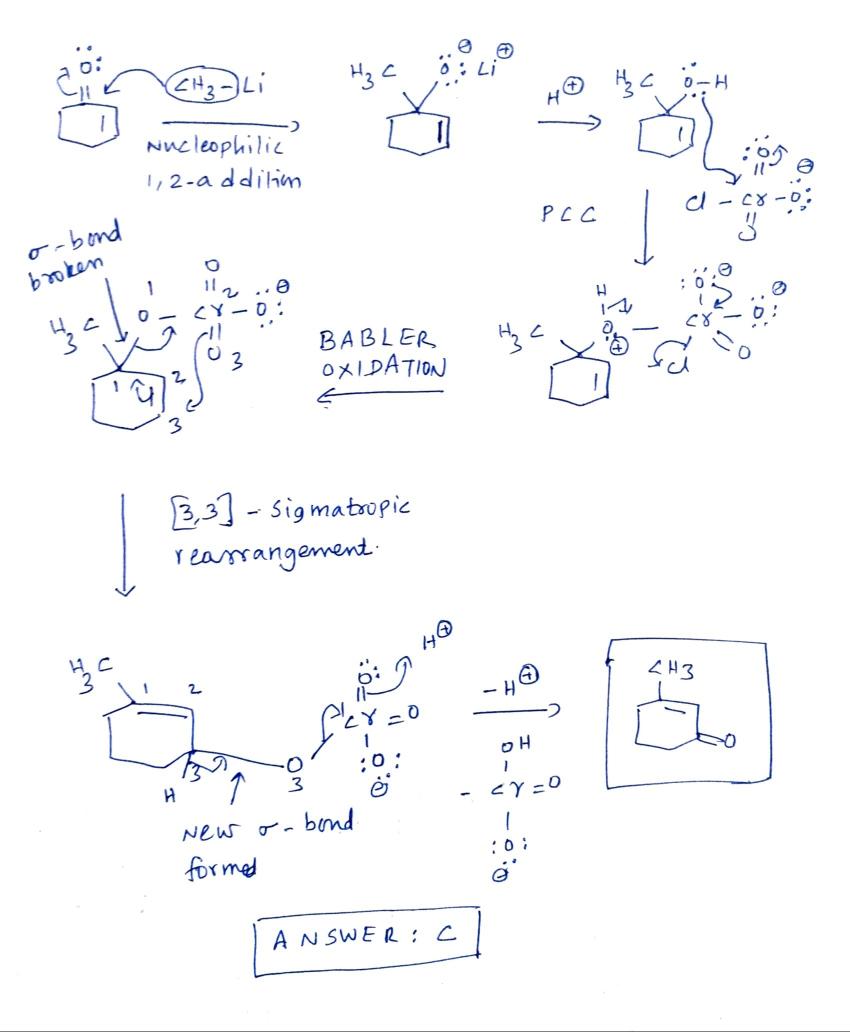 :O:
CH3-Li
Nucleophilic
1,2-addition
H3C
:O: ⊖ Li ⊕
H ⊕
H3C
O-H
PCC
:O:
Cl - Cr - O: ⊖
O
σ-bond
broken
1
O
2
H3C
O - Cr - O: ⊖
O 3
1
2
3
BABLER
OXIDATION
H
H3C
O ⊕
:O: ⊖
Cr - O: ⊖
Cl
O
[3,3] - sigmatropic
rearrangement.
H3C
1
2
3
H
O
3
:O:
H ⊕
Cr = O
:O:
⊖
New σ-bond
formed
- H ⊕
OH
- Cr = O
:O:
⊖
CH3
O
ANSWER: C